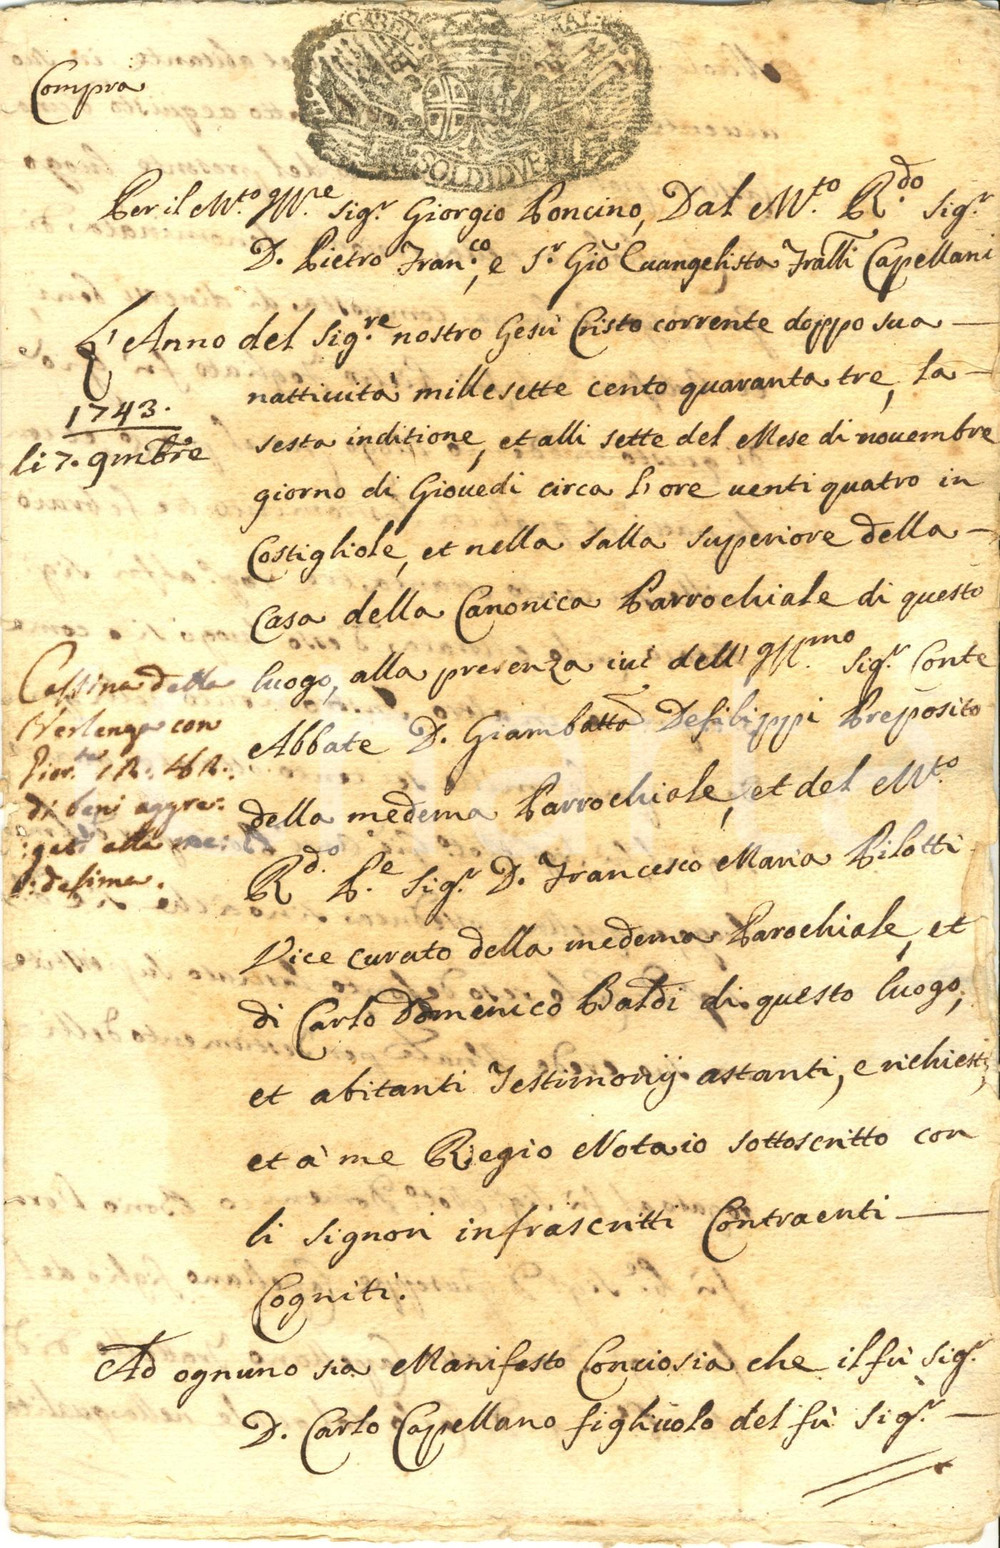 GABEL
SOLDI DVE
Compra
Per il M.to Ill.re Sig.r Giorgio Poncino, Dal M.to R.do Sig.r
D. Pietro Fran.co, e S.r Gio Euangelista Fratlli Capellani
L'Anno del Sig.re nostro Gesù Cristo corrente doppo sua
nattiuità mille sette cento quaranta tre, La
sesta inditione, et alli sette del Mese di nouembre
giorno di Giouedi circa l'ore uenti quatro in
Costigliole, et nella salla superiore della
Casa della Canonica Parrochiale di questo
luogo, alla presenza iui dell'Ill.mo Sig.r Conte
Abbate D. Giambatta Defilippi Preposito
della medema Parrochiale, et del M.to
R.do P.e Sig.r D. Francesco Maria Pilotti
Vice curato della medema Parochiale, et
di Carlo Domenico Baldi di questo luogo,
et abitanti Testimonij astanti, e richiesti,
et à me Regio Notaio sottoscritto con
li Signori infrascritti Contraenti
Cogniti.
Ad ognuno sia Manifesto Conciosia che il fù Sig.r
D. Carlo Capellano figliuolo del fù Sig.r
1743.
li 7. 9mbre
Cassina della
Verlenga con
di beni aggre:
:gati alla me:
:desima.